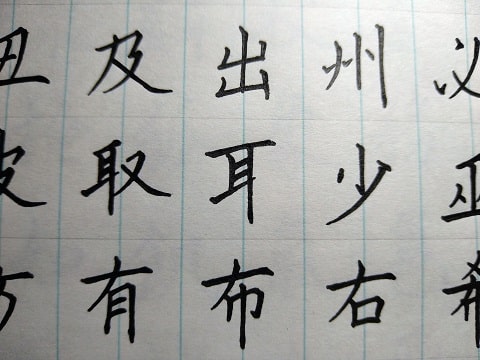 丑及出州必
皮取耳少巫
方有布右希